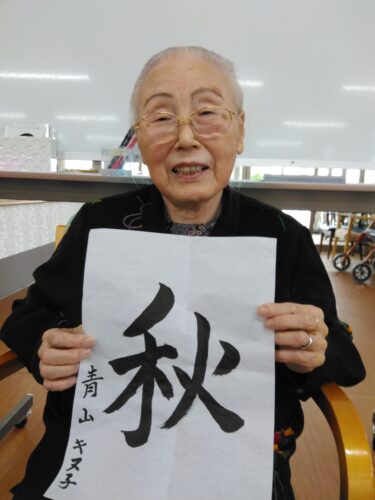 秋
青山キヌ子